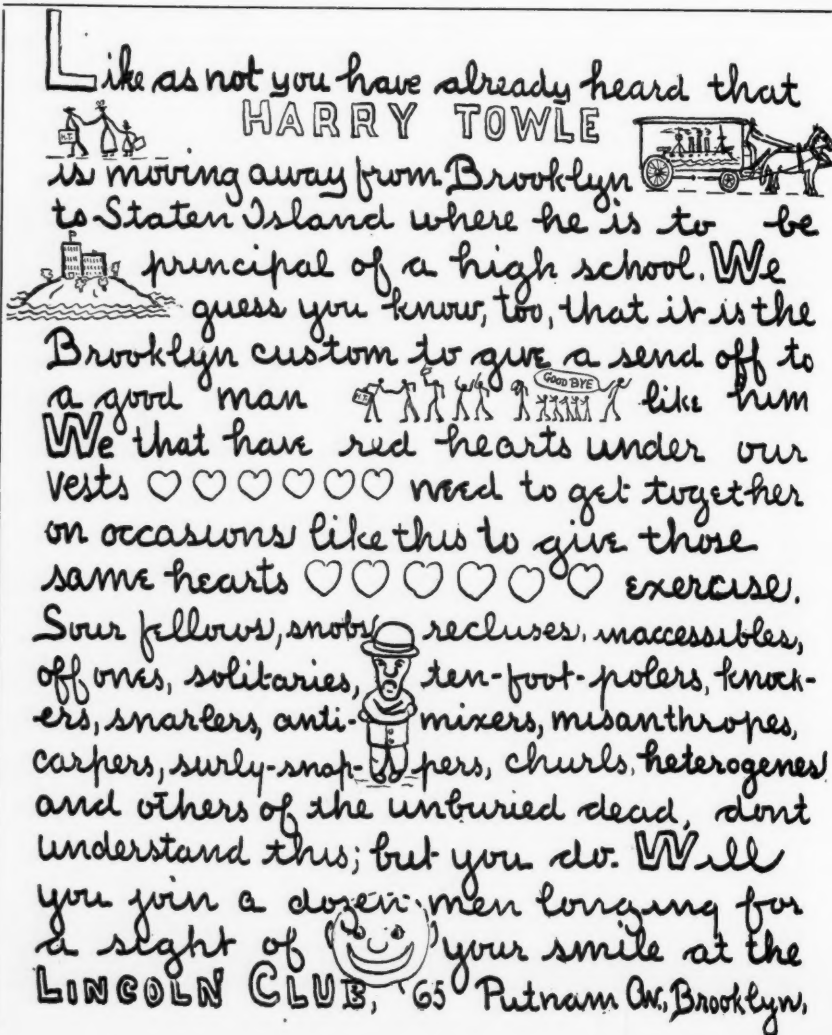 Like as not you have already heard that
HARRY TOWLE
H.T.
is moving away from Brooklyn
to Staten Island where he is to be
principal of a high school. We
guess you know, too, that it is the
Brooklyn custom to give a send off to
GOOD BYE
a good man like him
H.T.
We that have red hearts under our
vests need to get together
on occasions like this to give those
same hearts exercise.
Sour fellows, snobs, recluses, inaccessibles,
offones, solitaries, ten-foot-polers, knock-
ers, snarlers, anti-mixers, misanthropes,
carpers, surly-snap-pers, churls, heterogenes
and others of the unburied dead, dont
understand this; but you do. Will
you join a dozen men longing for
a sight of your smile at the
LINCOLN CLUB, '65 Putnam Av., Brooklyn,